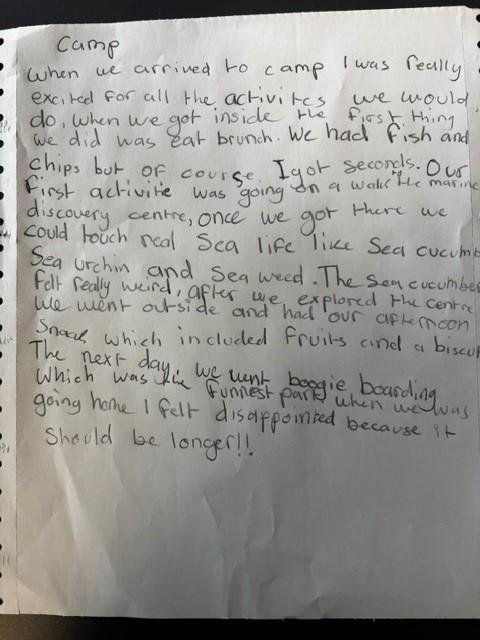 Camp
When we arrived to camp I was really
excited for all the activites we would
do, when we got inside the first thing
we did was eat brunch. We had fish and
chips but of course I got seconds. Our
first activitie was going on a walk to the marine
discovery centre, once we got there we
could touch real sea life like Sea cucumb
Sea urchin and sea weed. The sea cucumber
felt really weird, after we explored the centre
we went outside and had our afternoon
Snack which included fruits and a biscut
The next day, we went boogie boarding
which was the funnest part, when we was
going home I felt disappointed because it
Should be longer!!